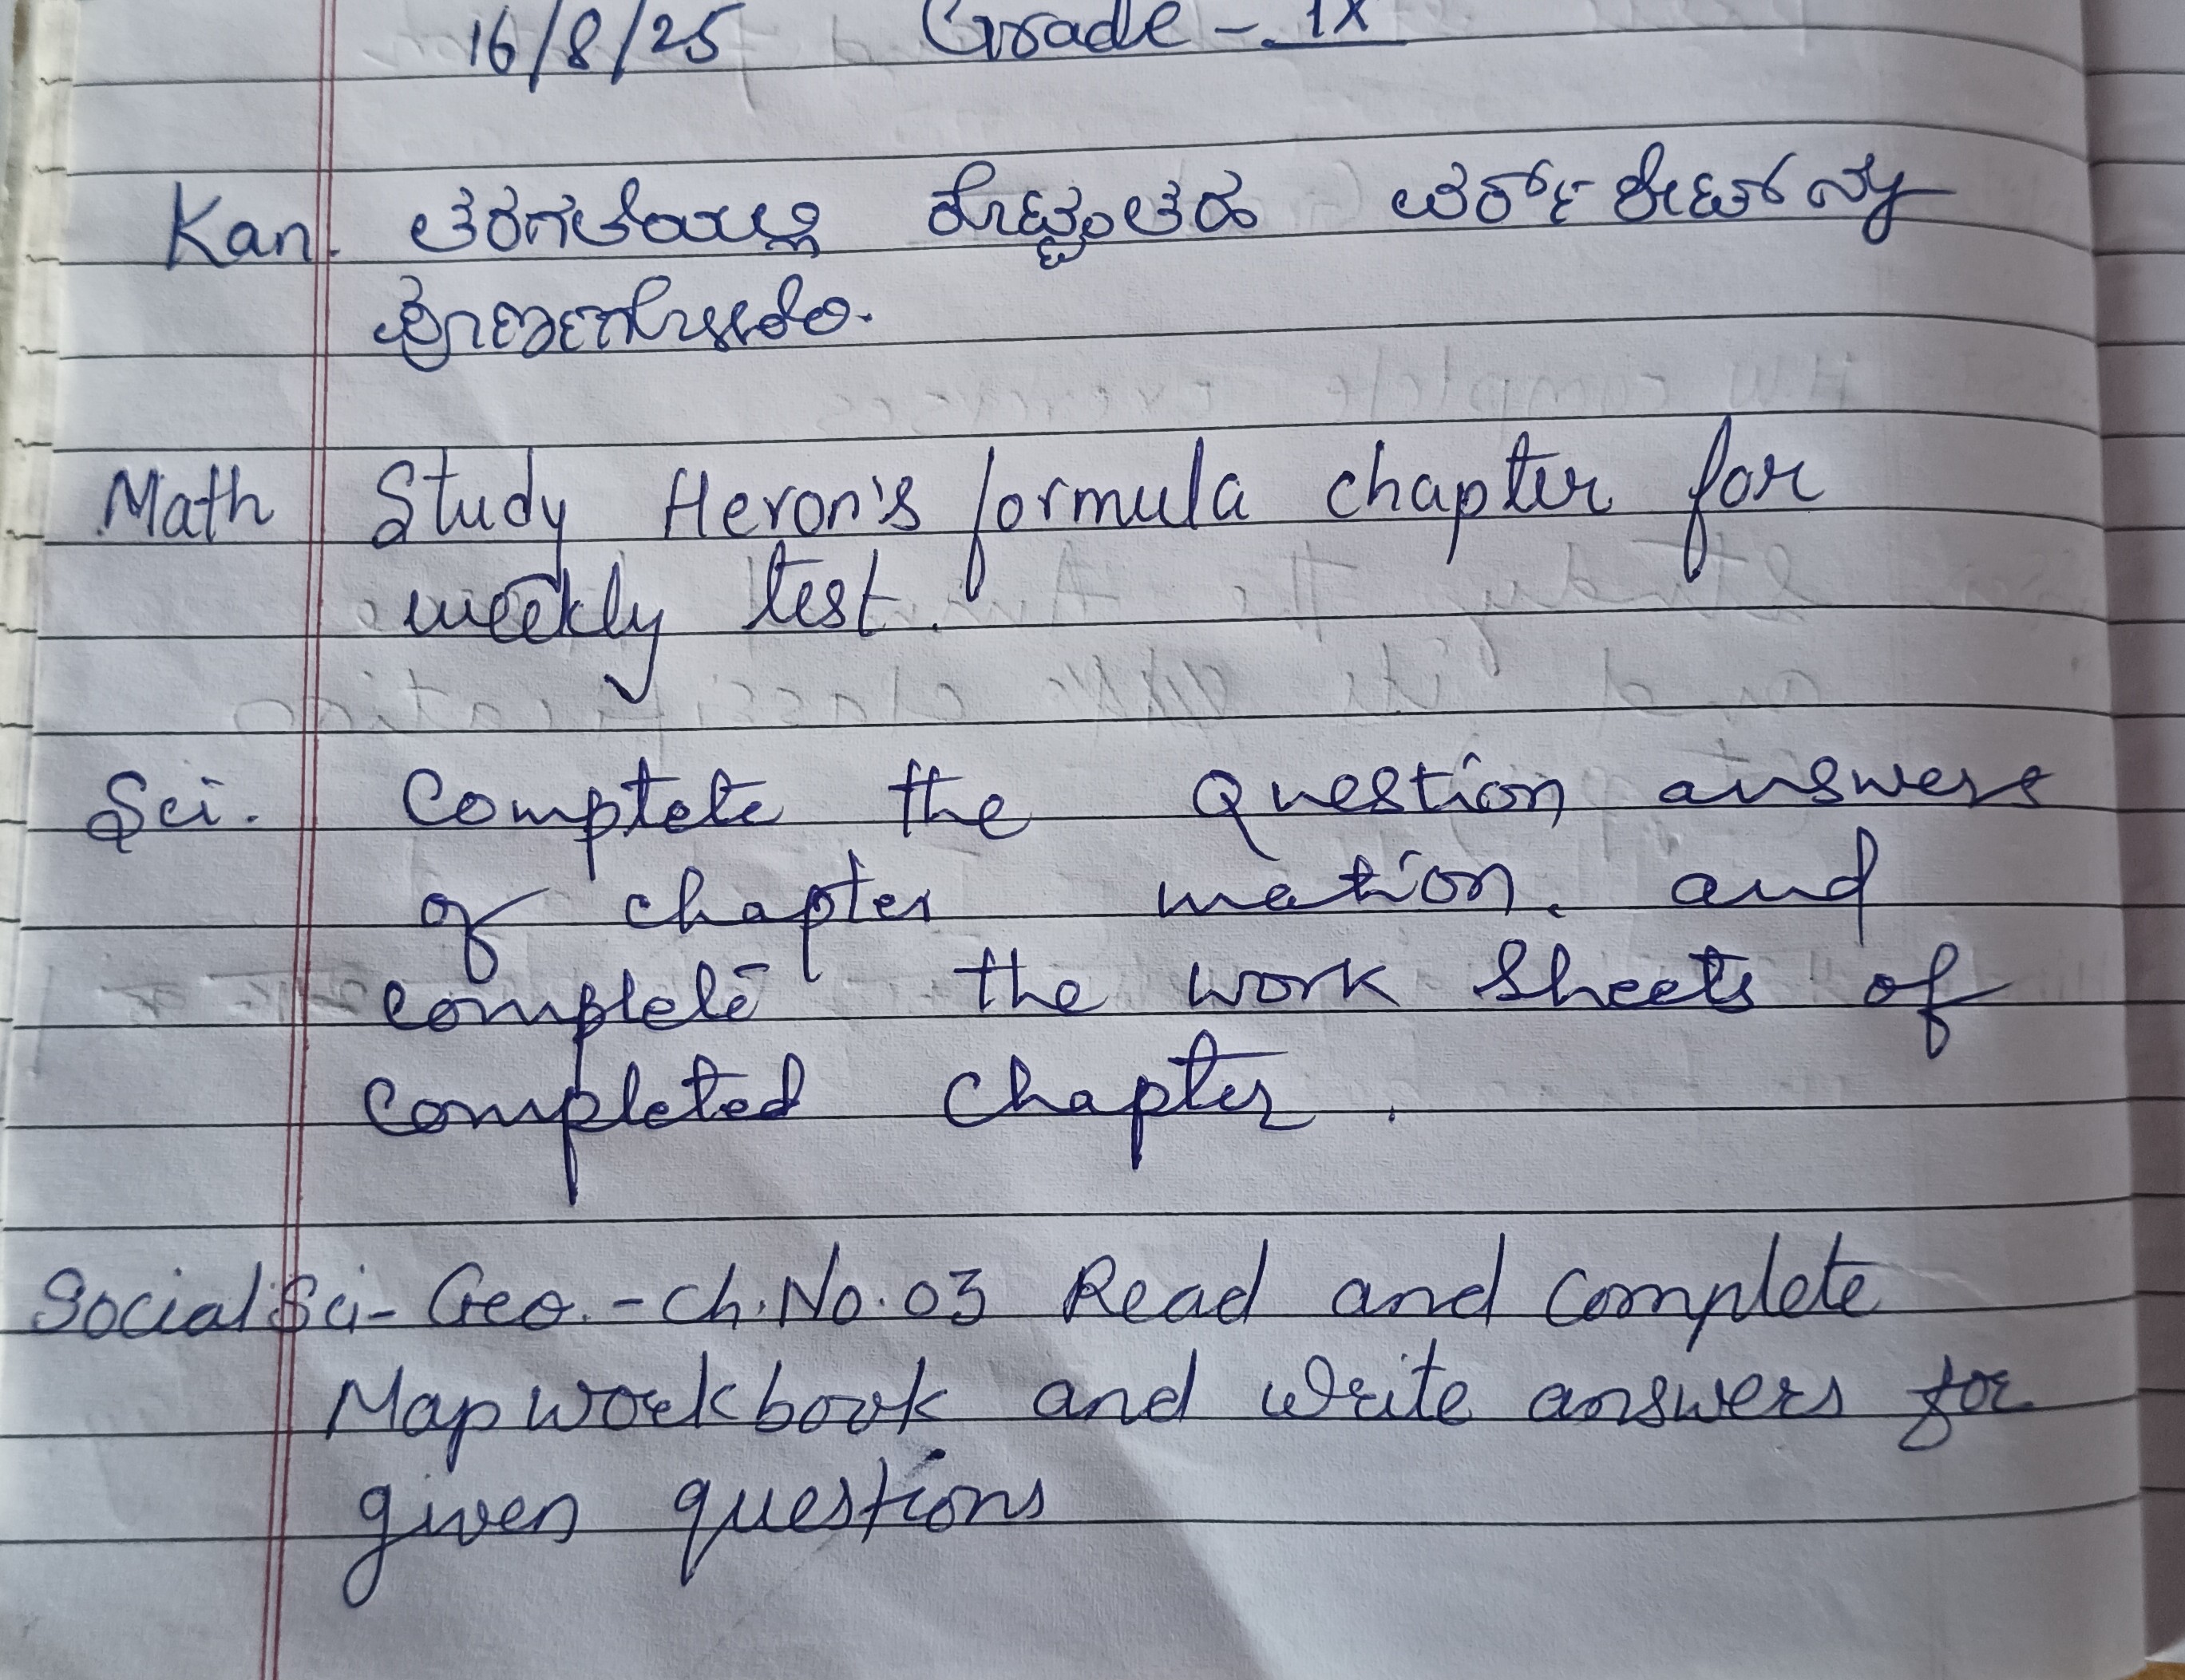 16/8/25 Grade - IX
Kan. ತರಗತಿಯಲ್ಲಿ ಕೊಟ್ಟಂತಹ ವರ್ಕ್ ಶೀಟ್ ನ್ನು
ಪೂರ್ಣಗೊಳಿಸಿ.
Math Study Heron's formula chapter for
weekly test.
Sci. Complete the Question answers
of chapter motion. and
complete the work sheets of
completed chapter.
Social Sci - Geo. - Ch. No. 03 Read and complete
Map workbook and write answers for
given questions